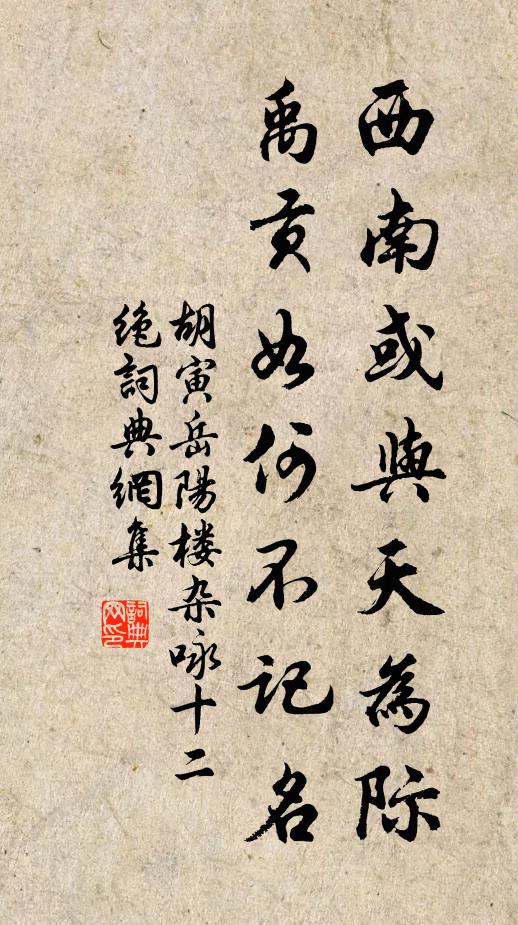 西南或與天為际
禹贡如何不记名
胡寅岳陽楼杂咏十二
绝詞典網集
詞典网印